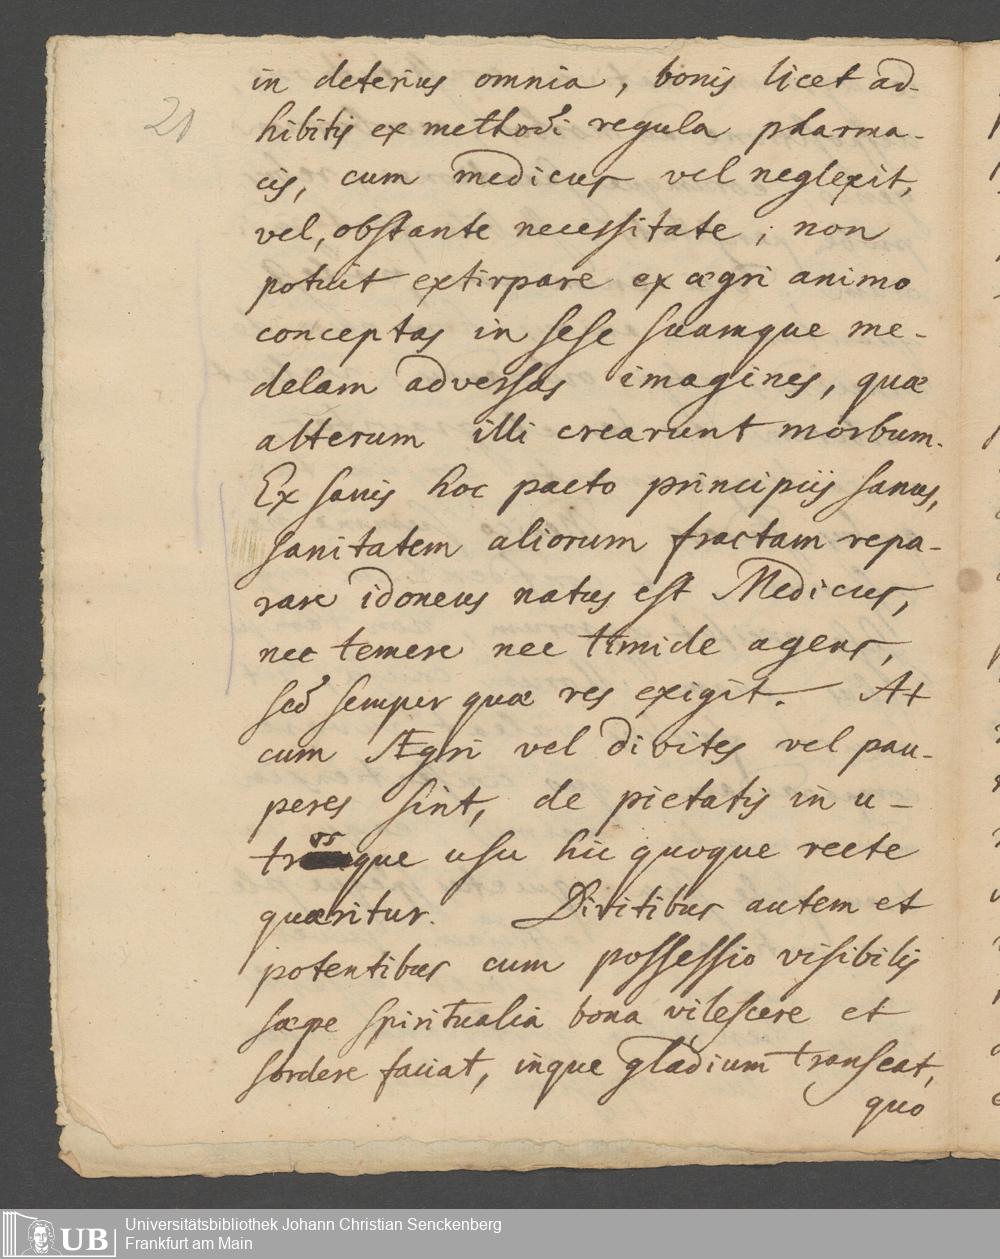 21
in deterius omnia, bonis licet ad-
hibitis ex methodi regula pharma-
cis, cum medicus vel neglexit,
vel, obstante necessitate, non
potuit extirpare ex ægri animo
conceptas in sese suamque me-
delam adversas imagines, quæ
alterum illi crearunt morbum.
Ex sanis hoc pacto principiis sanus,
sanitatem aliorum fractam repa-
rare idoneus natus est Medicus,
nec temere nec timide agens,
sed semper quæ res exigit. At
cum Ægri vel divites vel pau-
peres sint, de pietatis in u-
trosque usu hic quoque recte
quæritur. Divitibus autem et
potentibus cum possessio visibilis
sæpe spiritualia bona vilescere et
sordere faciat, inque gladium transeat,
quo
UB Universitätsbibliothek Johann Christian Senckenberg
Frankfurt am Main